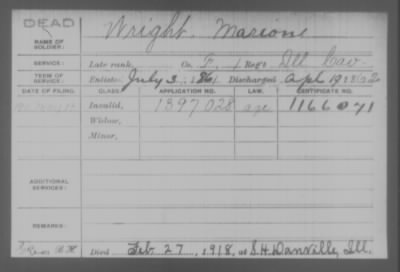 DEAD
NAME OF SOLDIER:
Wright, Marion
SERVICE:
Late rank, Co. F, 1 Reg't Ill Cav.
TERM OF SERVICE:
Enlisted July 3, 1861 Discharged Apl 19 1862
DATE OF FILING. CLASS. APPLICATION NO. LAW. CERTIFICATE NO.
Invalid, 1397028 age 1166071
Widow,
Minor,
ADDITIONAL SERVICES:
REMARKS:
Died Feb. 27, 1918, at S.H. Danville, Ill.